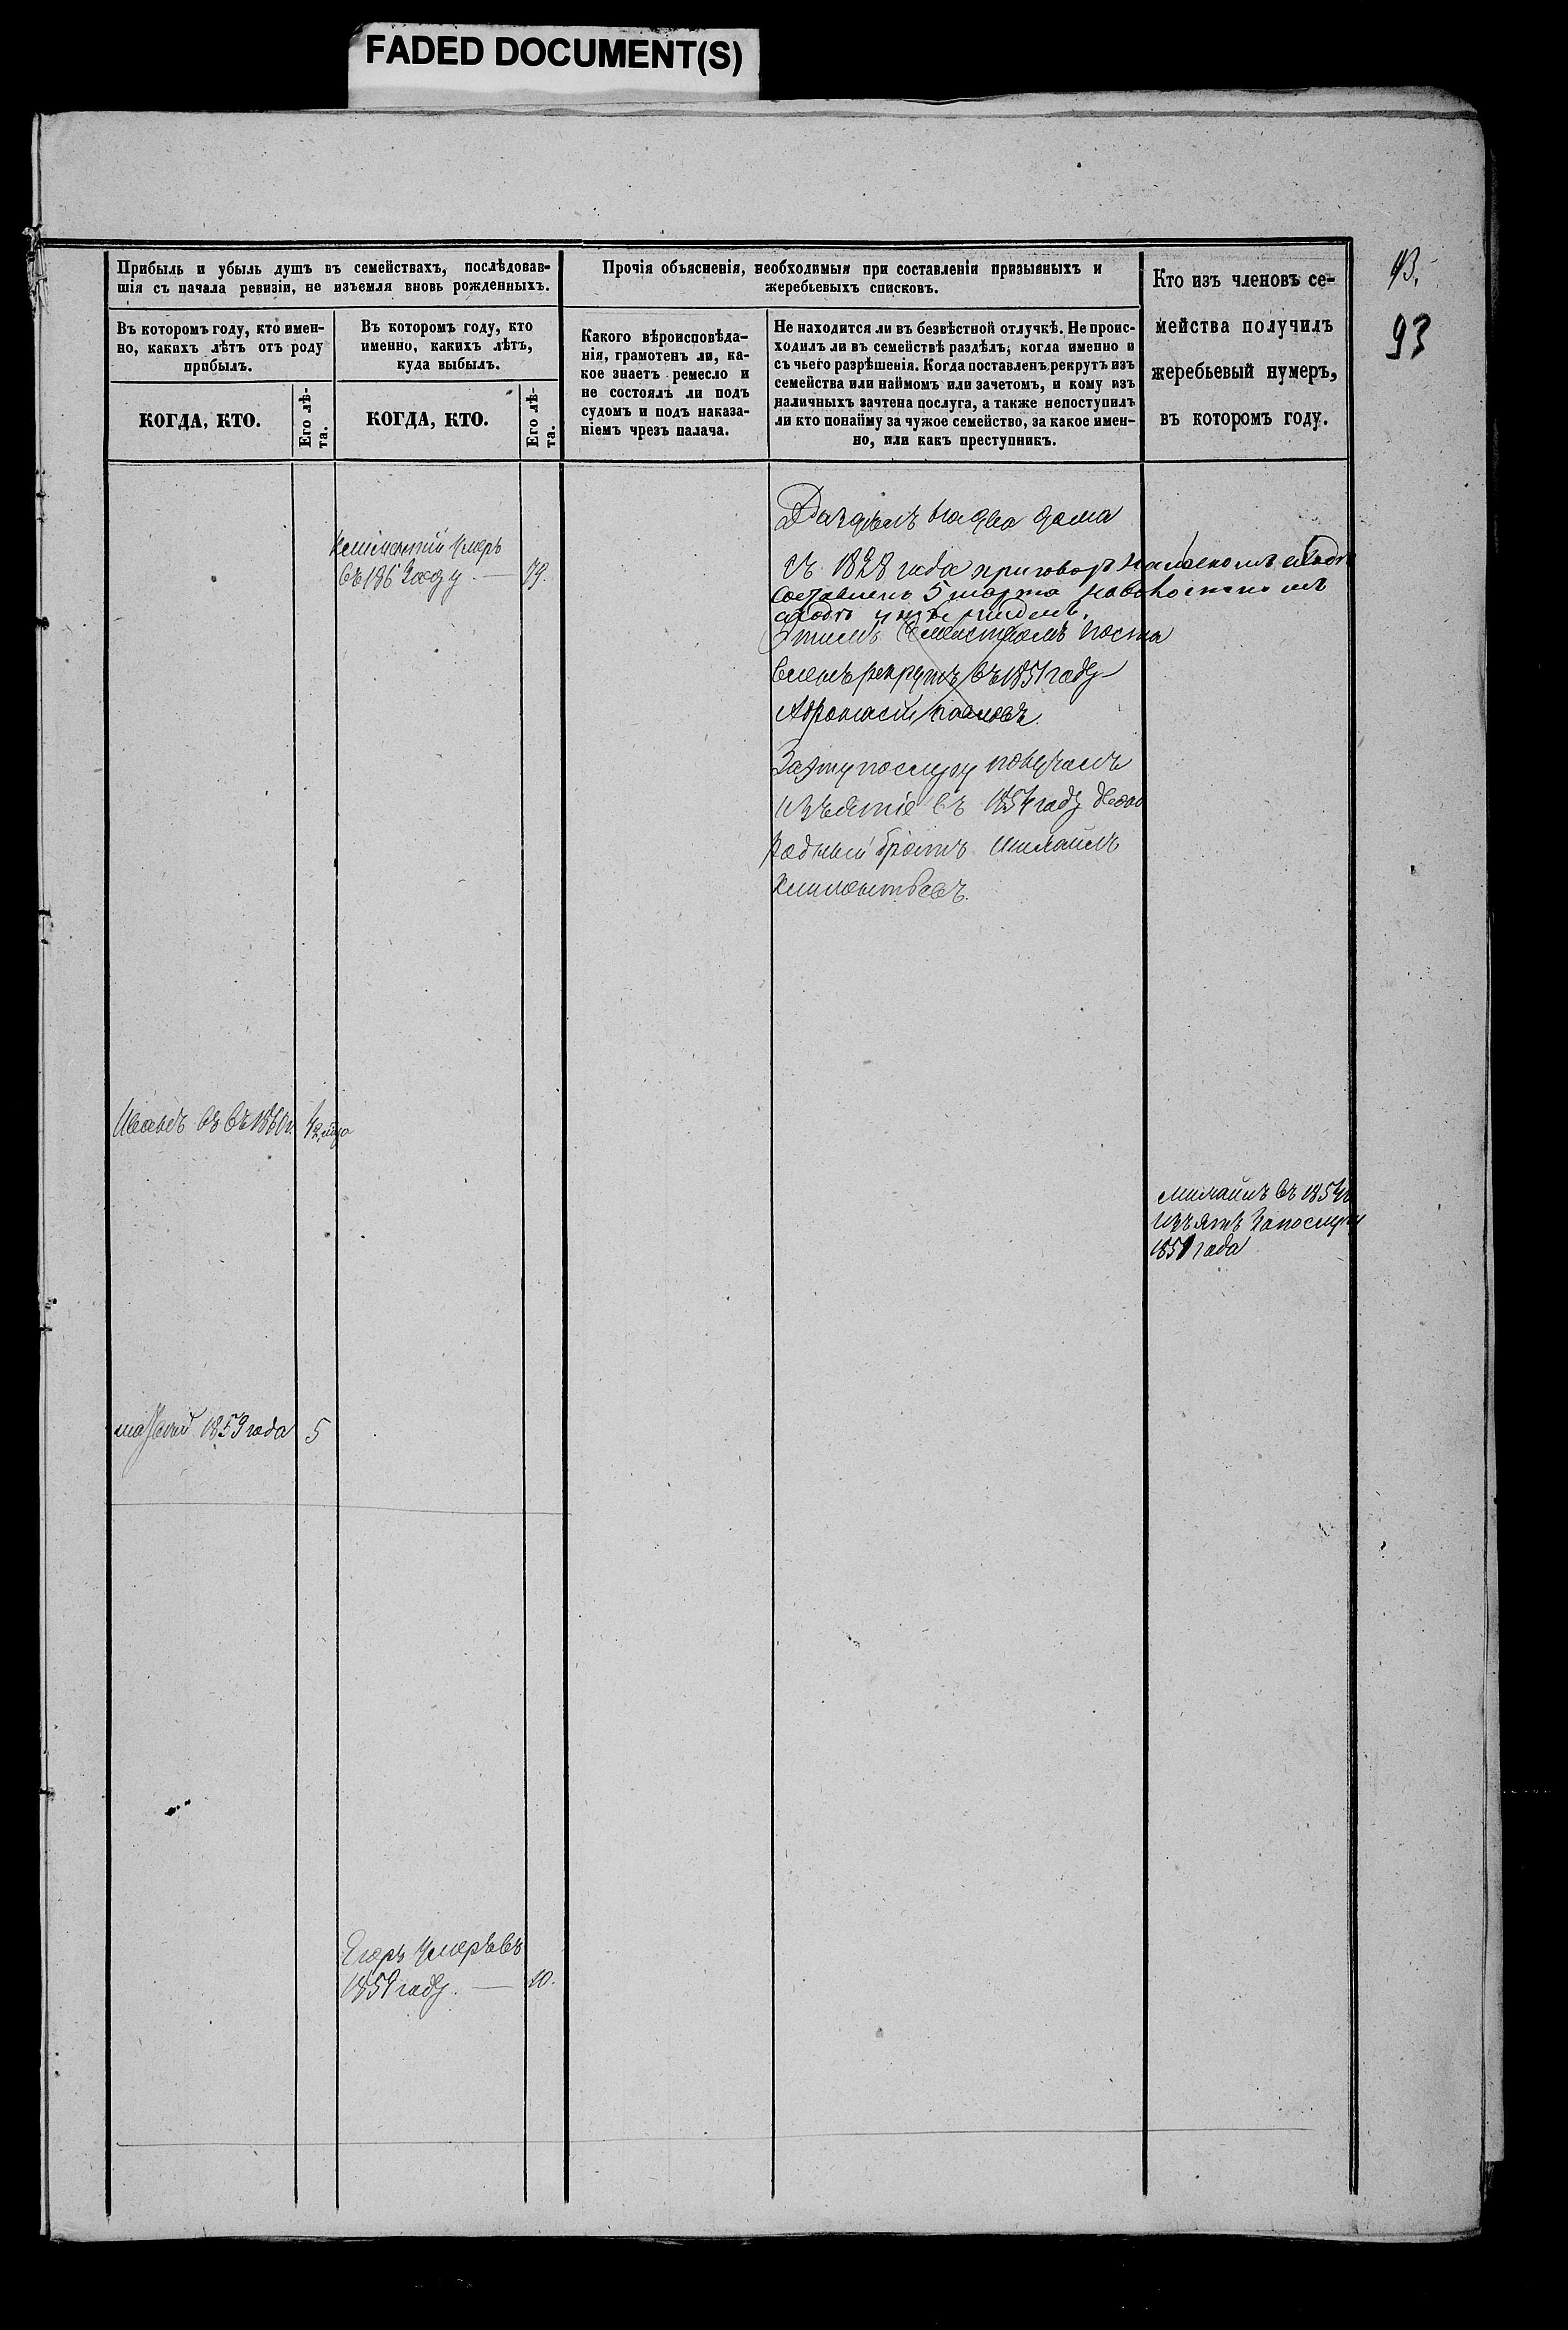 FADED DOCUMENT(S)
Прибыль и убыль душъ въ семействахъ, послѣдовав-
шія съ начала ревизіи, не изъемля вновь рожденныхъ.
Прочія объясненія, необходимыя при составленіи призывныхъ и
жеребьевыхъ списковъ.
Кто изъ членовъ се-
мейства получилъ
жеребьевый нумеръ,
въ которомъ году.
93
Въ которомъ году, кто имен-
но, какихъ лѣтъ отъ роду
прибылъ.
Въ которомъ году, кто
именно, какихъ лѣтъ,
куда выбылъ.
Какого вѣроисповѣда-
нія, грамотенъ ли, ка-
кое знаетъ ремесло и
не состоялъ ли подъ
судомъ и подъ наказа-
ніемъ чрезъ палача.
Не находится ли въ безвѣстной отлучкѣ. Не проис-
ходилъ ли въ семействѣ раздѣлъ, когда именно и
съ чьего разрѣшенія. Когда поставленъ рекрутъ изъ
семейства или наймомъ или зачетомъ, и кому изъ
наличныхъ зачтена послуга, а также непоступилъ
ли кто понайму за чужое семейство, за какое имен-
но, или какъ преступникъ.
КОГДА, КТО.
Его лѣ-
та.
КОГДА, КТО.
Его лѣ-
та.
умеръ
году
79.
Раздѣлъ на два дома
съ 1828 года приговоръ
составленъ 5 марта
Этимъ семействомъ поста
вленъ рекрутъ въ 1851 году
За эту послугу получилъ
изъятіе въ 1854 году двою
родный братъ Михаилъ
Климентьевъ.
1860
Михаилъ въ 1854
изъятъ за послугу
1851 года
1859 года 5
Егоръ умеръ въ
1859 году.
10.